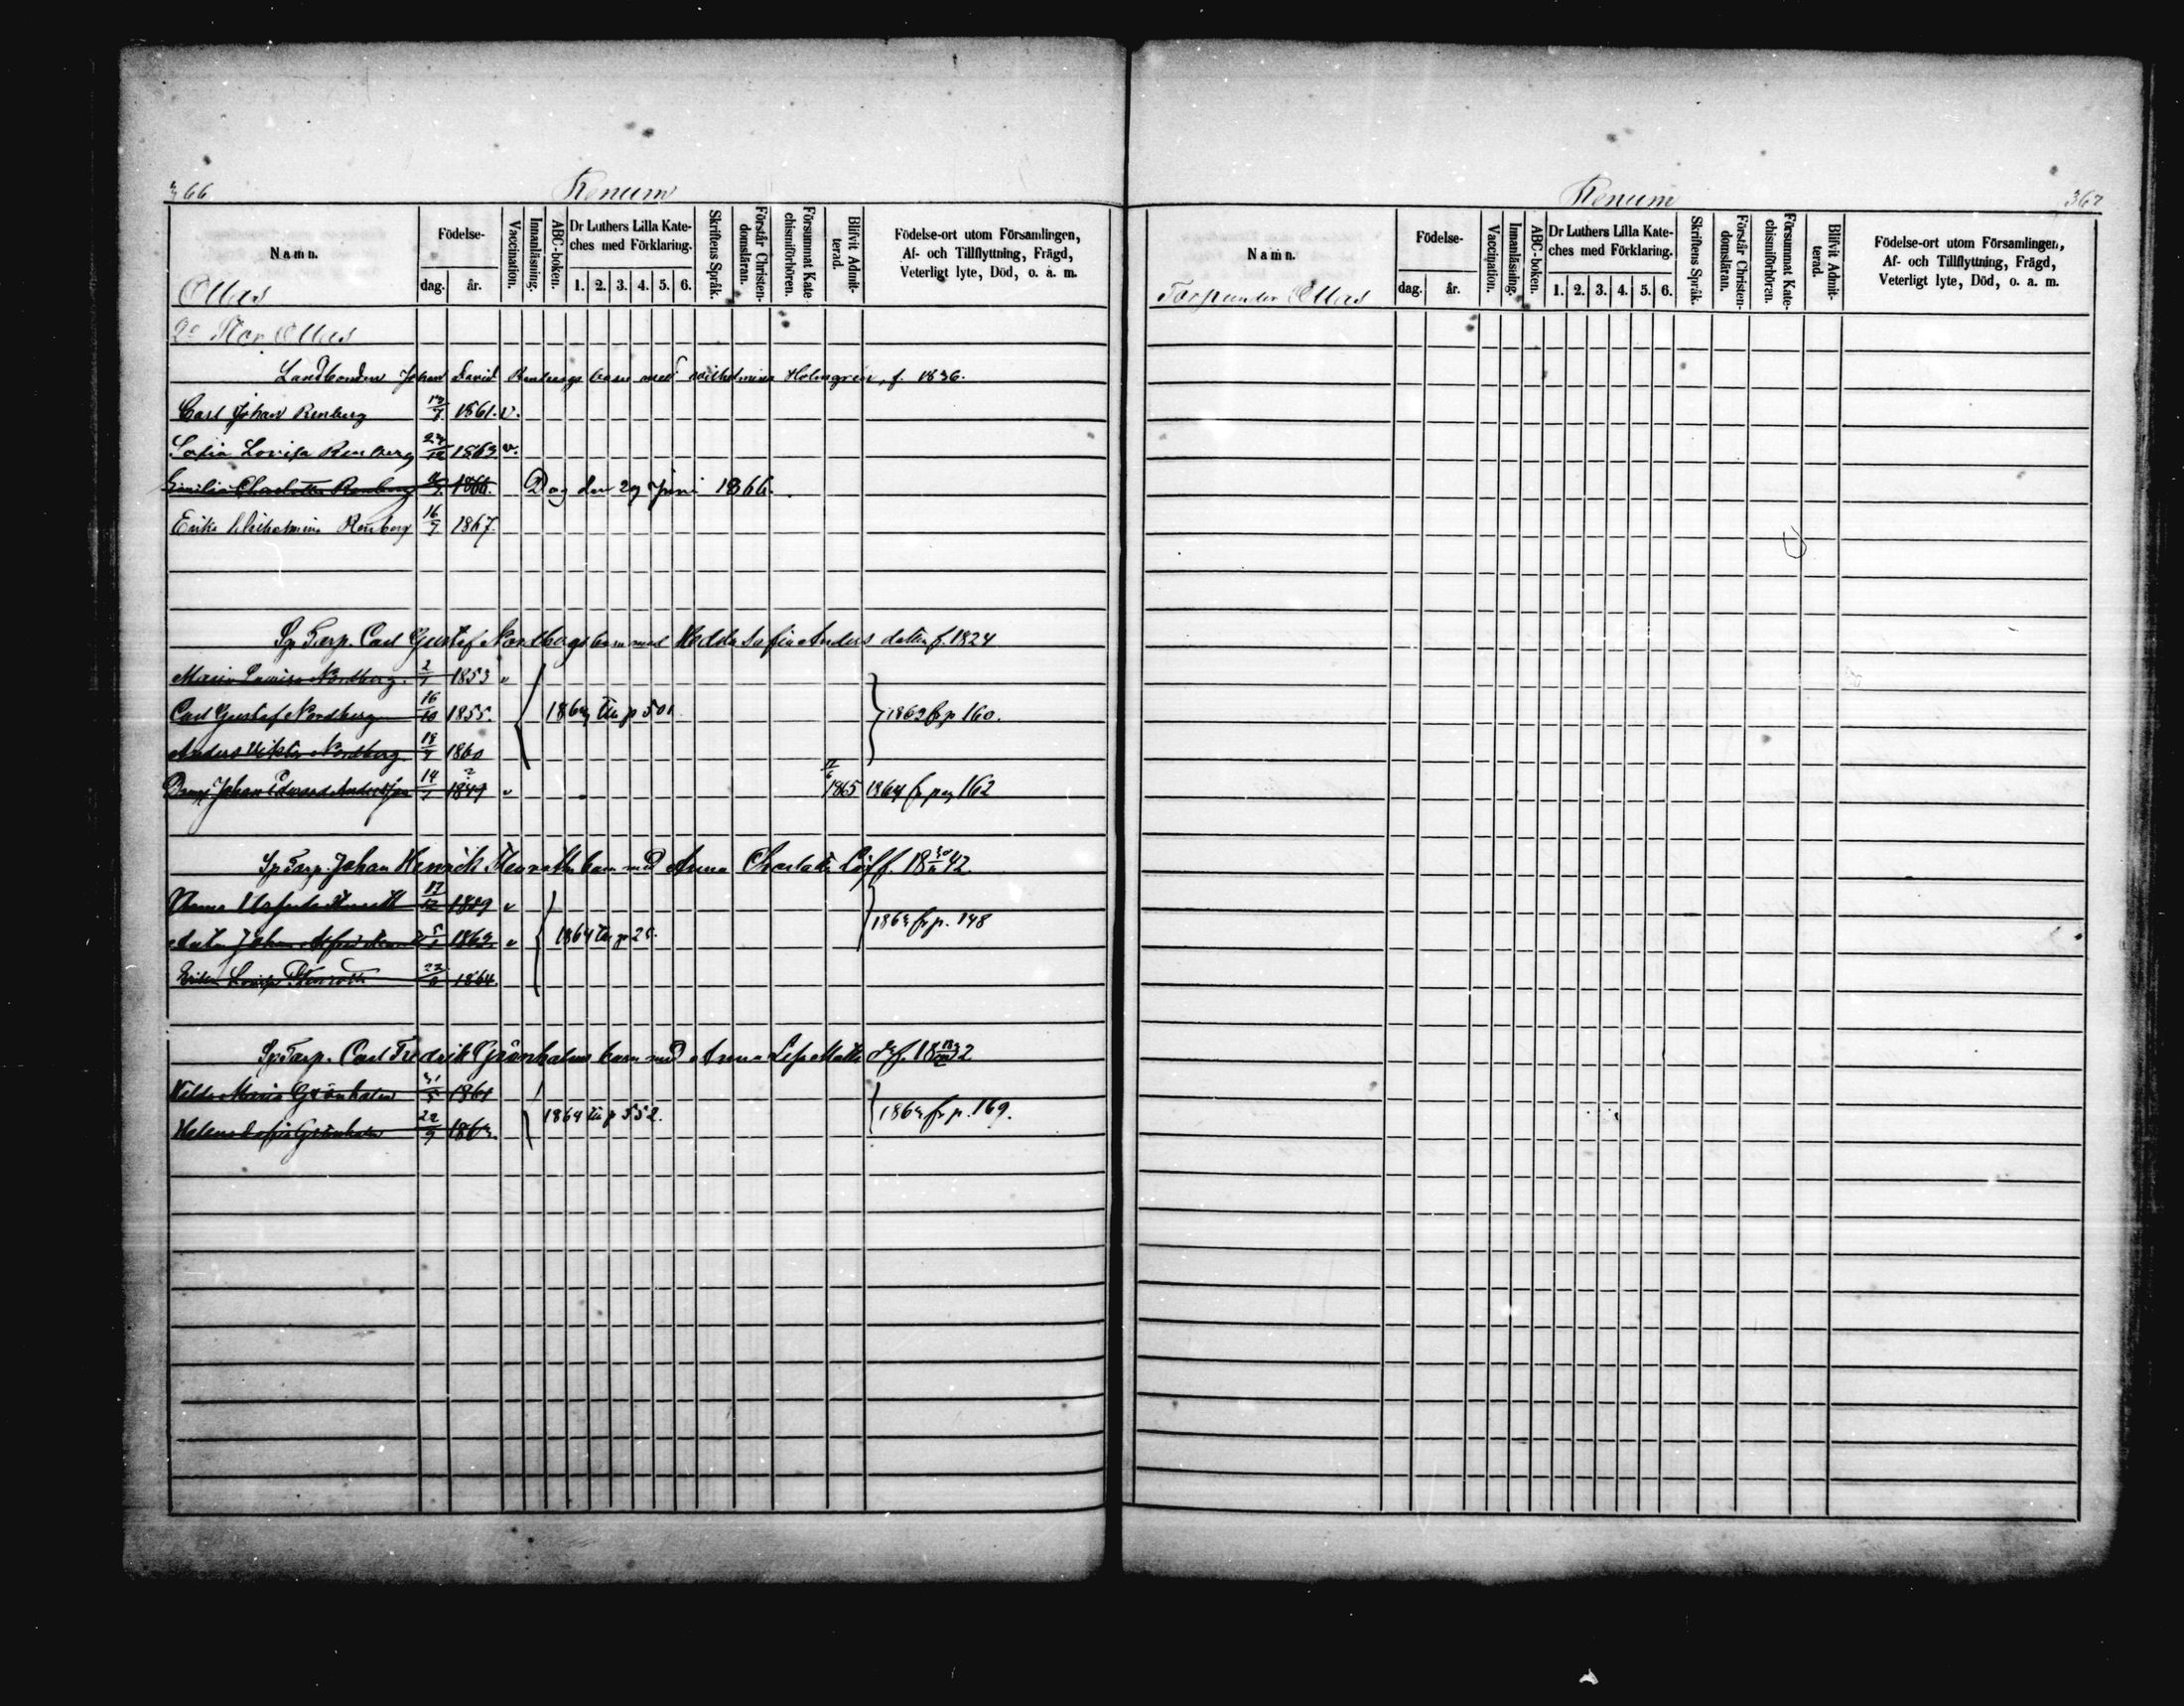 366
Renum
Namn.
Födelse-
dag. år.
Vaccination.
Innanläsning.
ABC-boken.
Dr Luthers Lilla Kateches med Förklaring.
1. 2. 3. 4. 5. 6.
Skriftens Språk.
Förstår Christendomsläran.
Försummat Katechismiförhören.
Blifvit Admitterad.
Födelse-ort utom Församlingen,
Af- och Tillflyttning, Frägd,
Veterligt lyte, Död, o. a. m.
Ollas
2o Stor Ollas
Landbonden Johan David Renbergs barn med Wilhelmina Holmgren, f. 1836.
Carl Johan Renberg 1861. v.
Sofia Lovisa Renberg 1863 v.
Emilia Charlotta Renberg 1866. Dog den 29 Juni 1866.
Erika Wilhelmina Renberg 16/7 1867.
Sp Torp. Carl Gustaf Nordbergs barn med Hedda Sofia Andersdotter f. 1824
Maria Lovisa Nordberg. 2/7 1853 v
Carl Gustaf Nordberg 16/10 1855. 1864 till p 501. 1862 fr p 160.
Anders Viktor Nordberg 1860
Johan Edvard Andersson 14 1849 v 1865 1864 fr pag 162
Sp Torp. Johan Henrik Stenroths barn med Anna Charlotta Löf f. 1842.
17/12 1859 v 1863 fr p. 148
Johan Alfred 1863 v 1864 till p 25.
Erika Lovisa Stenroth 1864.
Sp Torp. Carl Fredrik Grönholms barn med Anna Lisa
Hilda Maria Grönholm 31/5 1861 1864 till p 552. 1863 fr p. 169.
Helena Sofia Grönholm 22/9 1863.
Renum
367
Namn.
Födelse-
dag. år.
Vaccination.
Innanläsning.
ABC-boken.
Dr Luthers Lilla Kateches med Förklaring.
1. 2. 3. 4. 5. 6.
Skriftens Språk.
Förstår Christendomsläran.
Försummat Katechismiförhören.
Blifvit Admitterad.
Födelse-ort utom Församlingen,
Af- och Tillflyttning, Frägd,
Veterligt lyte, Död, o. a. m.
Torp under Ollas